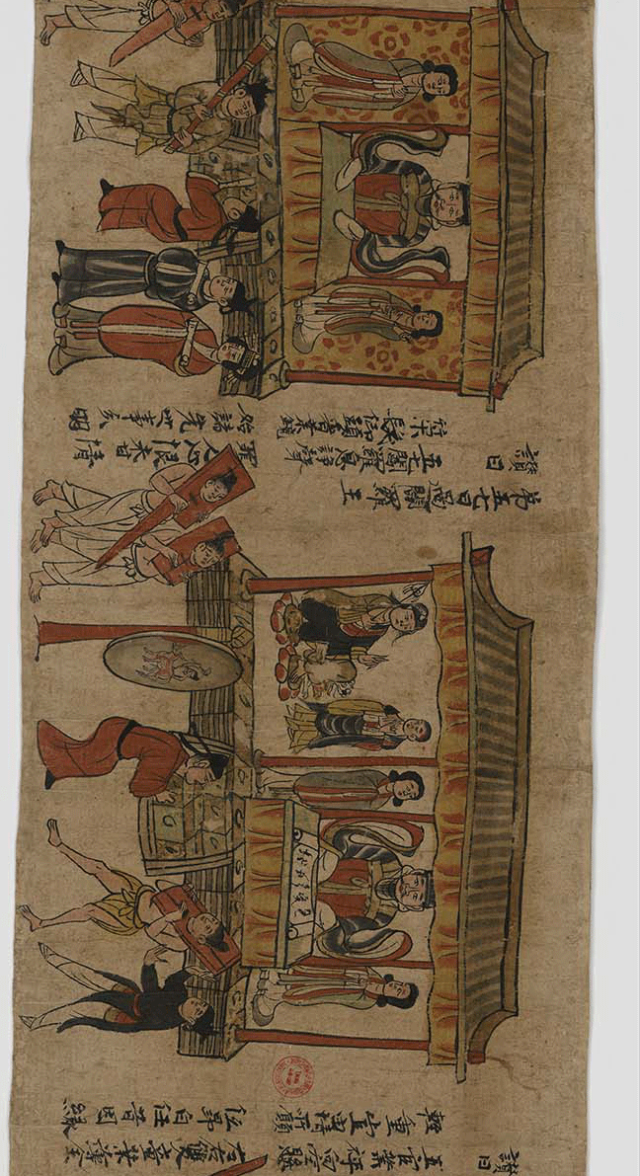 讚曰
五官業秤向空懸 左右雙童業簿全
輕重豈由情所願 低昂自任昔因緣
第五七日過閻羅王
讚曰
五七閻羅息諍聲 罪人心恨未甘情
策髮仰頭看業鏡 始諸先世事分明